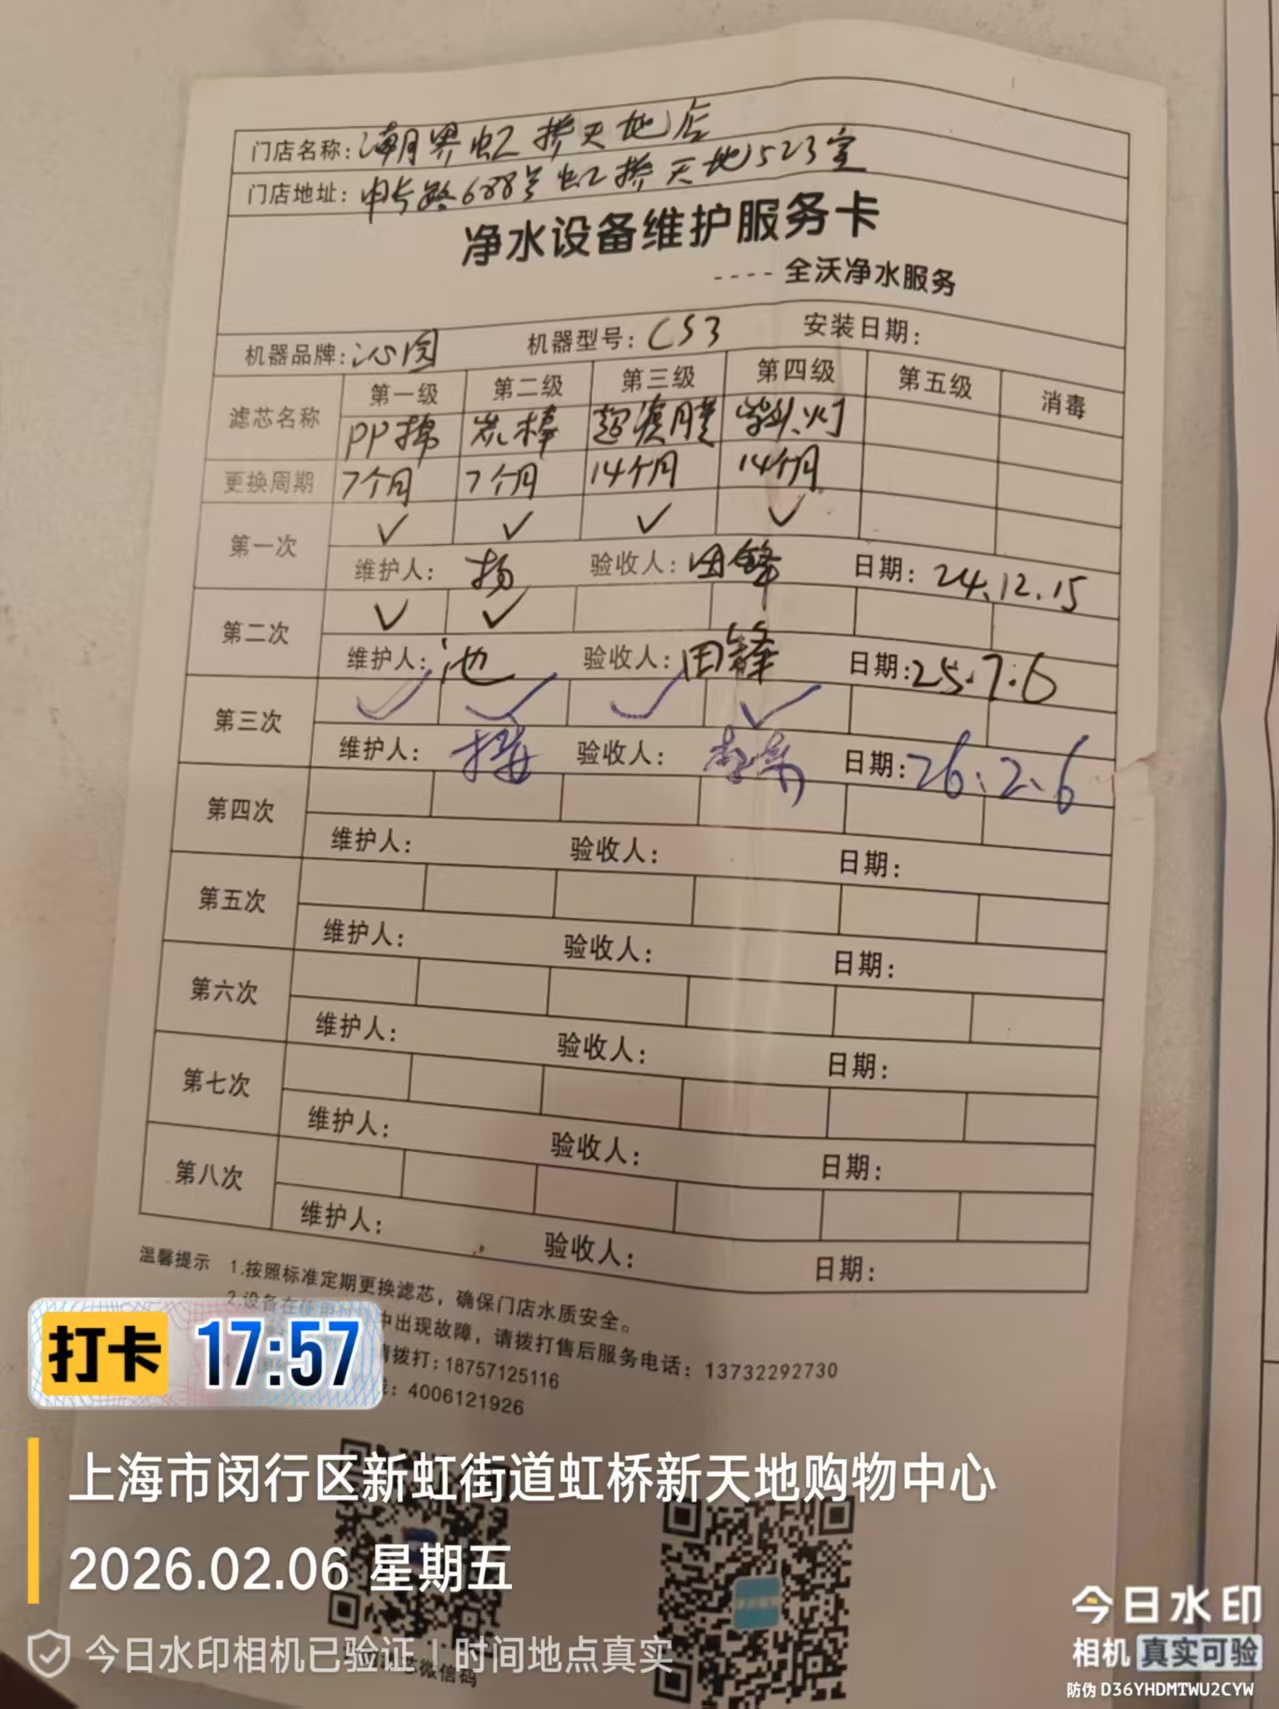 门店名称：潮界虹桥天地店
门店地址：申长路688号虹桥天地523室
净水设备维护服务卡
---- 全沃净水服务
机器品牌：沁园 机器型号：CS3 安装日期：
滤芯名称 第一级 第二级 第三级 第四级 第五级 消毒
PP棉 炭棒 超滤膜 紫外灯
更换周期 7个月 7个月 14个月 14个月
第一次 ✓ ✓ ✓ ✓
维护人：杨 验收人：田锋 日期：24.12.15
第二次 ✓ ✓
维护人：池 验收人：田锋 日期：25.7.6
第三次 ✓ ✓ ✓ ✓
维护人： 验收人： 日期：26.2.6
第四次
维护人： 验收人： 日期：
第五次
维护人： 验收人： 日期：
第六次
维护人： 验收人： 日期：
第七次
维护人： 验收人： 日期：
第八次
维护人： 验收人： 日期：
温馨提示 1.按照标准定期更换滤芯，确保门店水质安全。
2.设备在使用 中出现故障，请拨打售后服务电话：13732292730
请拨打：18757125116
：4006121926
打卡 17:57
上海市闵行区新虹街道虹桥新天地购物中心
2026.02.06 星期五
今日水印相机已验证 | 时间地点真实
微信码
今日水印
相机 真实可验
防伪 D36YHDMTWU2CYW